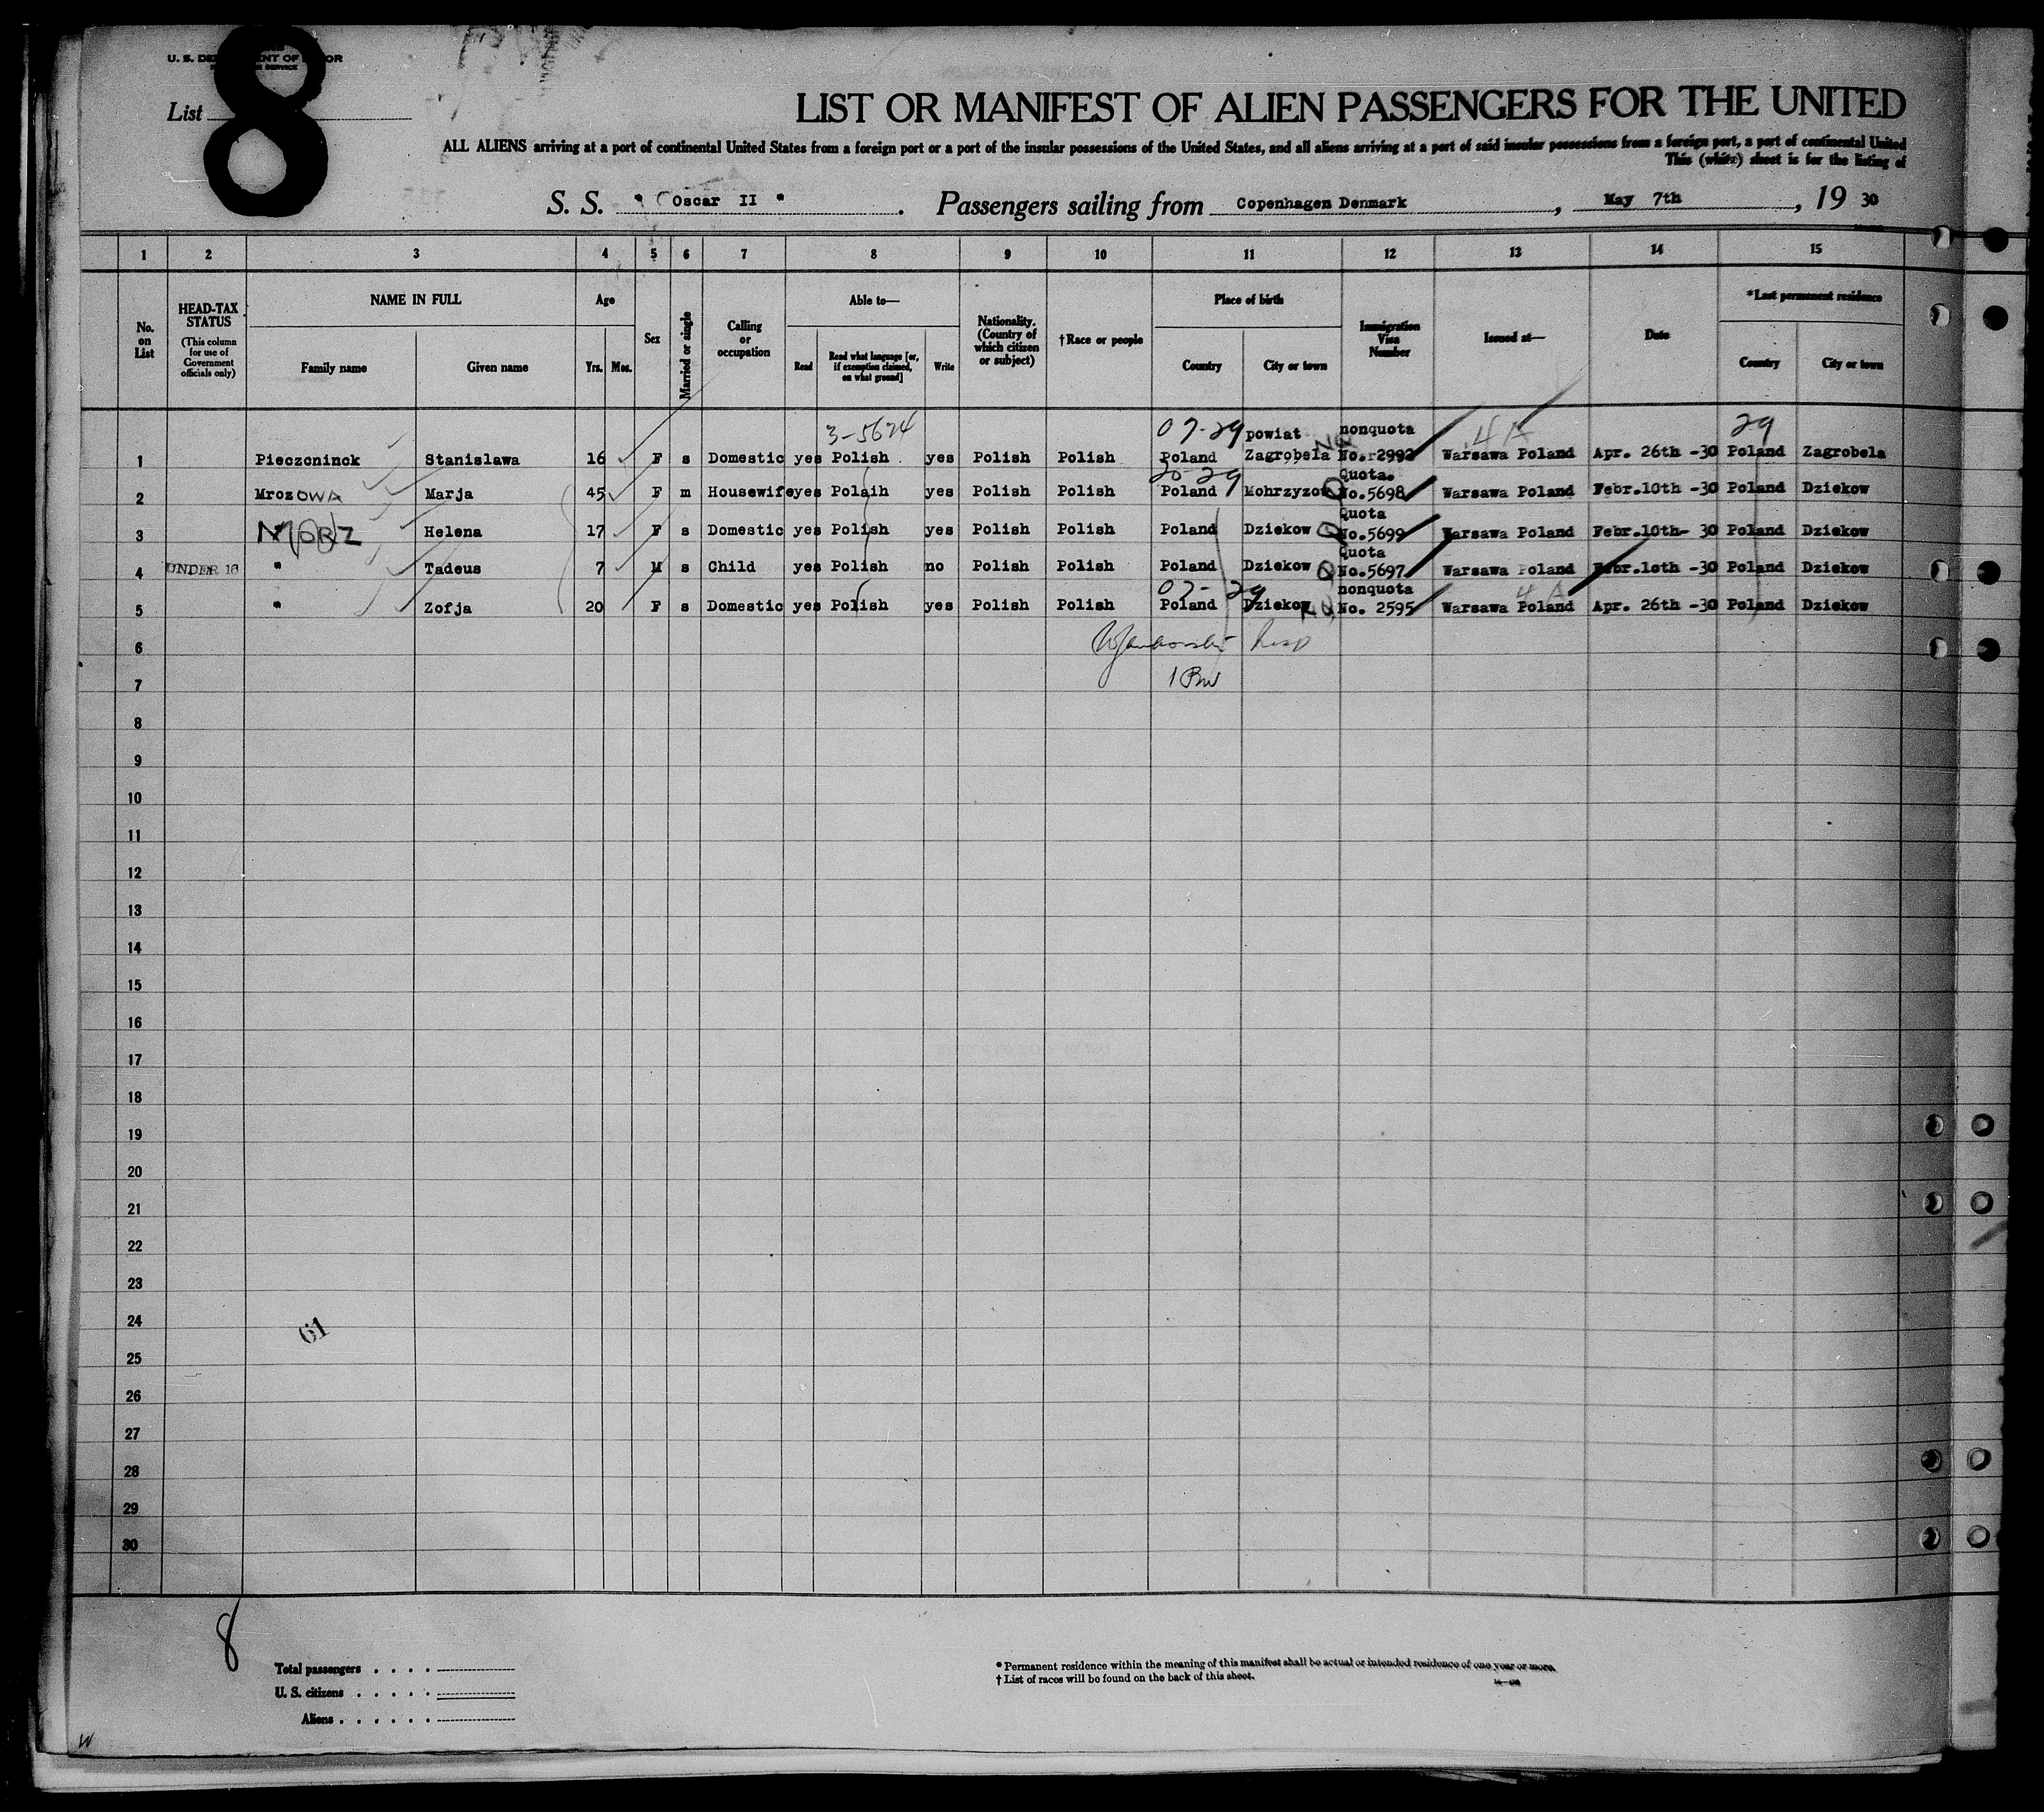 U. S. DEPARTMENT OF LABOR
SERVICE
List 8
LIST OR MANIFEST OF ALIEN PASSENGERS FOR THE UNITED
ALL ALIENS arriving at a port of continental United States from a foreign port or a port of the insular possessions of the United States, and all aliens arriving at a port of said insular possessions from a foreign port, a part of continental United
This (white) sheet is for the listing of
S. S. " Oscar II " . Passengers sailing from Copenhagen Denmark , May 7th , 19 30
1 2 3 4 5 6 7 8 9 10 11 12 13 14 15
No. on List
HEAD-TAX STATUS (This column for use of Government officials only)
NAME IN FULL
Family name Given name
Age
Yrs. Mos.
Sex
Married or single
Calling or occupation
Able to—
Read Read what language [or, if exemption claimed, on what ground] Write
Nationality. (Country of which citizen or subject)
†Race or people
Place of birth
Country City or town
Immigration Visa Number
Issued at—
Date
*Last permanent residence
Country City or town
3-5624 07-29 powiat nonquota 4A 29
1 Pieczoninck Stanislawa 16 F s Domestic yes Polish yes Polish Polish Poland Zagrobela No. 2992 Warsawa Poland Apr. 26th -30 Poland Zagrobela
20-29 Quota.
2 MrozOWA Marja 45 F m Housewife yes Polaih yes Polish Polish Poland Mohrzyzow Q No.5698 Warsawa Poland Febr.10th -30 Poland Dziekow
Quota
3 MORZ Helena 17 F s Domestic yes Polish yes Polish Polish Poland Dziekow Q No.5699 Warsawa Poland Febr.10th- 30 Poland Dziekow
Quota
4 UNDER 16 " Tadeus 7 M s Child yes Polish no Polish Polish Poland Dziekow Q No.5697 Warsawa Poland Febr.10th -30 Poland Dziekow
07-29 nonquota 4A
5 " Zofja 20 F s Domestic yes Polish yes Polish Polish Poland Dziekow No. 2595 Warsawa Poland Apr. 26th -30 Poland Dziekow
6
7
8
9
10
11
12
13
14
15
16
17
18
19
20
21
22
23
24
61
25
26
27
28
29
30
8
Total passengers
U. S. citizens
Aliens
* Permanent residence within the meaning of this manifest shall be actual or intended residence of one year or more.
† List of races will be found on the back of this sheet.
W